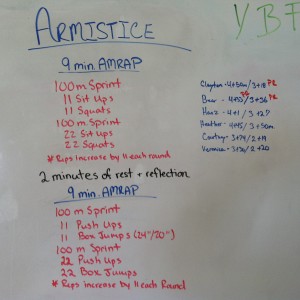 ARMISTICE
YBF
9 min. AMRAP
100m Sprint
11 Sit Ups
11 Squats
100m Sprint
22 Sit Ups
22 Squats
* Reps increase by 11 each round
2 minutes of rest + reflection
9 min. AMRAP
100 m Sprint
11 Push Ups
11 Box Jumps (24"/20")
100m Sprint
22 Push Ups
22 Box Jumps
* Reps increase by 11 each Round
Clayton - 4+50m / 3+18 PR
3+36 PR
Hanz - 4+1 /
Heather - 4+45 / 3+50m
Courtney - 3+74 / 2+19
3+36 / 2+20